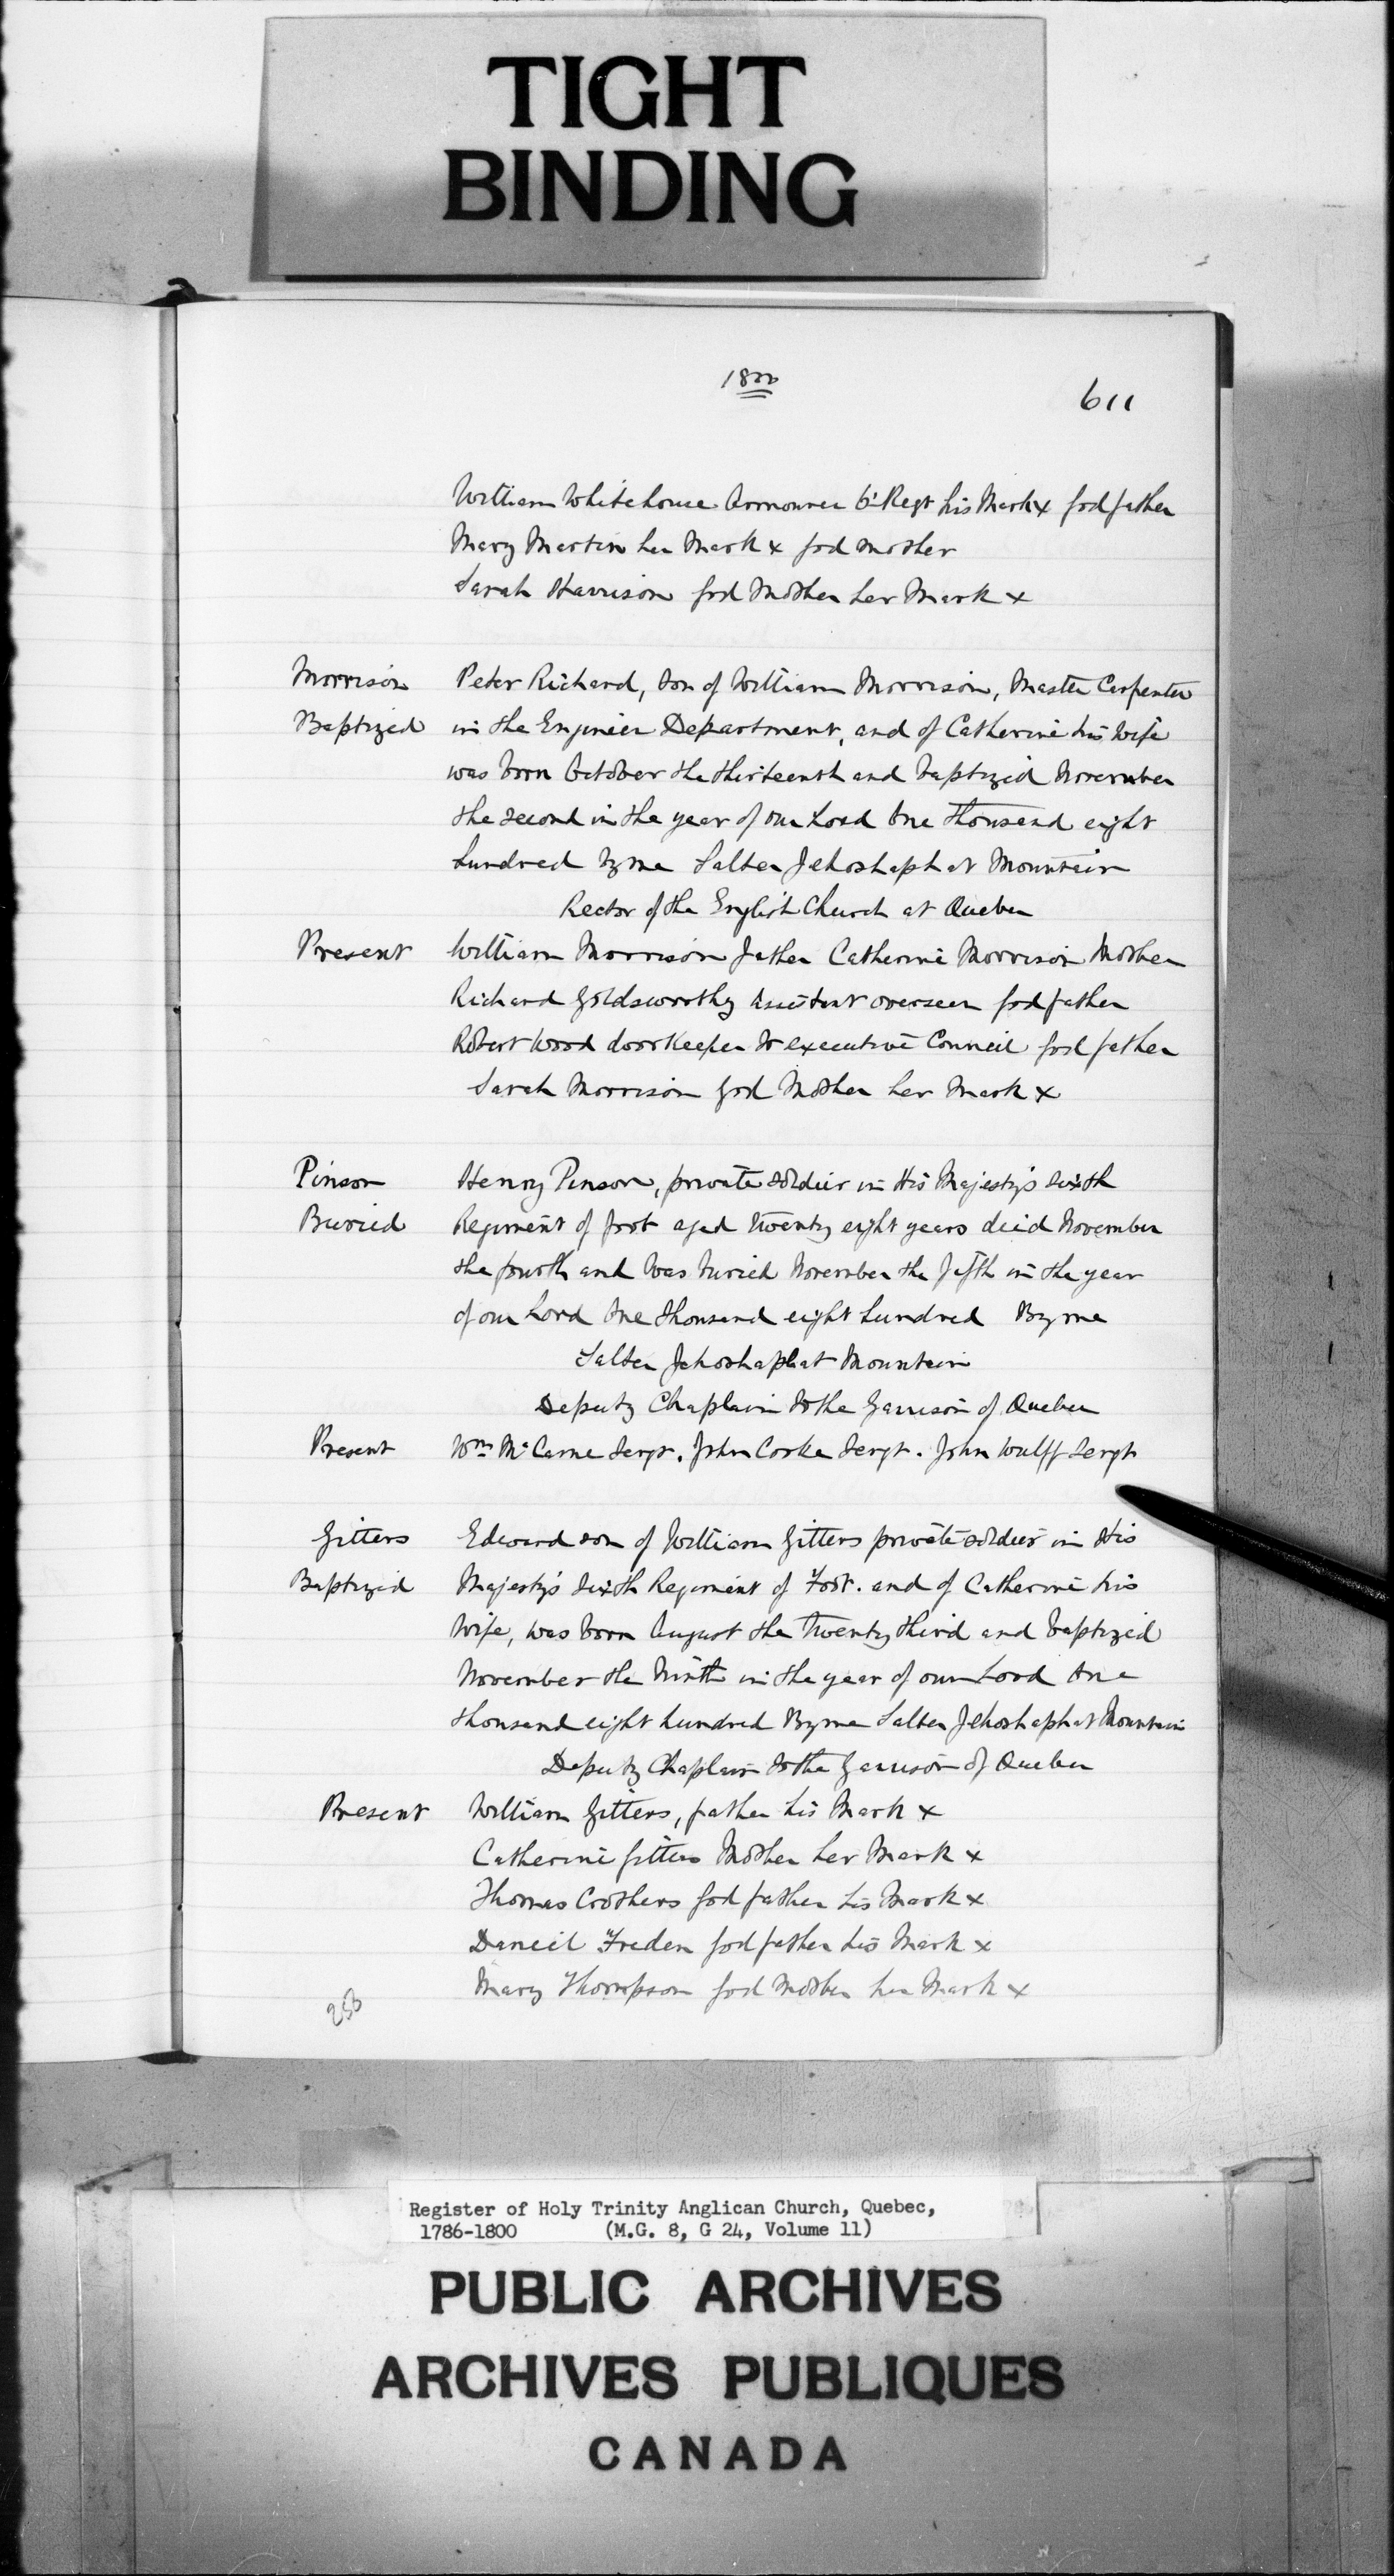 TIGHT
BINDING
1800
611
William Whitehouse Armourer 6t Regt his Mark x god father
Mary Martin her Mark x god mother
Sarah Harrison god Mother her Mark x
Morrison Peter Richard, son of William Morrison, Master Carpenter
Baptized in the Engineer Department, and of Catherine his Wife
was born October the thirteenth and baptized November
the second in the year of our Lord One thousand eight
hundred by me Salter Jehoshaphat Mountain
Rector of the English Church at Quebec
Present William Morrison Father Catherine Morrison Mother
Richard Goldsworthy assistant overseer god father
Robert Wood door Keeper to executive Council god father
Sarah Morrison God Mother her Mark x
Pinson Henry Pinson, private soldier in His Majesty's sixth
Buried Regiment of foot aged twenty eight years died November
the fourth and was buried November the fifth in the year
of our Lord One thousand eight hundred By me
Salter Jehoshaphat Mountain
Deputy Chaplain to the Garrison of Quebec
Present Wm Mc Carne Sergt. John Corke Sergt. John Wulff Sergt
Gitters Edward son of William Gitters private soldier in His
Baptized Majesty's sixth Regiment of Foot. and of Catherine his
Wife, was born August the twenty third and baptized
November the Ninth in the year of our Lord One
thousand eight hundred By me Salter Jehoshaphat Mountain
Deputy Chaplain to the Garrison of Quebec
Present William Gitters, father his Mark x
Catherine Gitters Mother her Mark x
Thomas Crothers god father his Mark x
Daneil Freden god father his Mark x
Mary Thompson god Mother her Mark x
Register of Holy Trinity Anglican Church, Quebec,
1786-1800 (M.G. 8, G 24, Volume 11)
PUBLIC ARCHIVES
ARCHIVES PUBLIQUES
CANADA